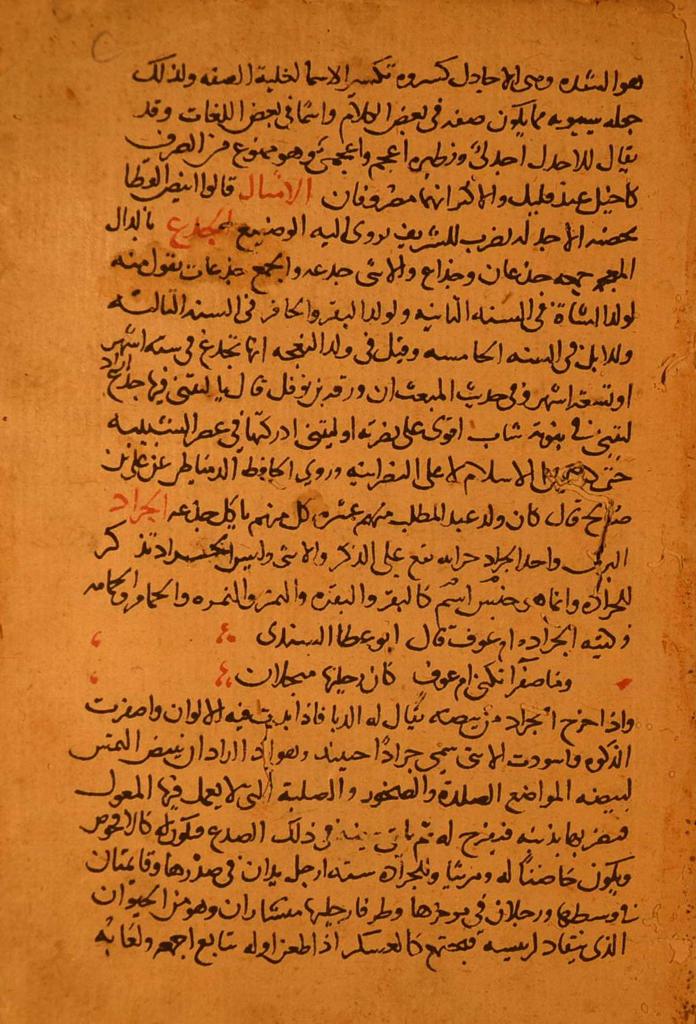 هو الشده وهي الاجادل كسروه تكسير الاسما لغلبة الصفه ولذلك
جعله سيبويه مما يكون صفه في بعض الكلام واسما في بعض اللغات وقد
يقال للاجدل اجدلي ونظيره اعجم واعجمي وهو ممنوع من الصرف
كاخيل عند قليل والاكثر انهما مصروفان الامثال قالوا ابيض القطا
يحضنه الاجدل يضرب للشريف يووى اليه الوضيع الجذع بالدال
المعجمه جمعه جذعان وجذاع والانثى جذعه والجمع جذعات تقول منه
لولد الشاة في السنه الثانيه ولولد البقر والحافر في السنه الثالثه
وللابل في السنه الخامسه وقيل في ولد النعجه انها تجذع في سته اشهر
او تسعه اشهر وفي حديث المبعث ان ورقه بن نوفل قال يا ليتني فيها جذع اراد
ليتني في نبوته شاب اقوى على نصرته او ليتني ادركتها في عصر الشبيبه
حتى الاسلام لا على النصرانيه وروي الحافظ الدمياطي عن علي بن
صالح قال كان ولد عبد المطلب منهم عشره كل منهم ياكل جذعه الجراد
البري واحد الجراد جراده يقع على الذكر والانثى وليس الجراد بذكر
للجراده وانما هي جنس اسم كالبقر والبقره والتمر والتمره والحمام والحمامه
وكنيته الجراده ام عوف قال ابو عطا السندي
وما صفرا تكنى ام عوف كان رجيلتيها منجلان
واذا خرج الجراد من بيضه يقال له الدبا فاذا بدت فيه الالوان واصفرت
الذكوره واسودت الانثى سمي جرادا حينئذ وهو اذا اراد ان يبيض التمس
لبيضه المواضع الصلدة والصخور والصلبة التي لا يعمل فيها المعول
فيضربها بذنبه فتفرج له ثم يلقي بيضه في ذلك الصدع فيكون له كالافحوص
ويكون حاضنا له ومربيا وللجراده سته ارجل يدان في صدرها وقايمتان
في وسطها ورجلان في موخرها وطرفا رجليها منشاران وهو من الحيوان
الذي ينقاد لرييسه فيجتمع كالعسكر اذا ظعن اوله تتابع اجمعه ولعابه